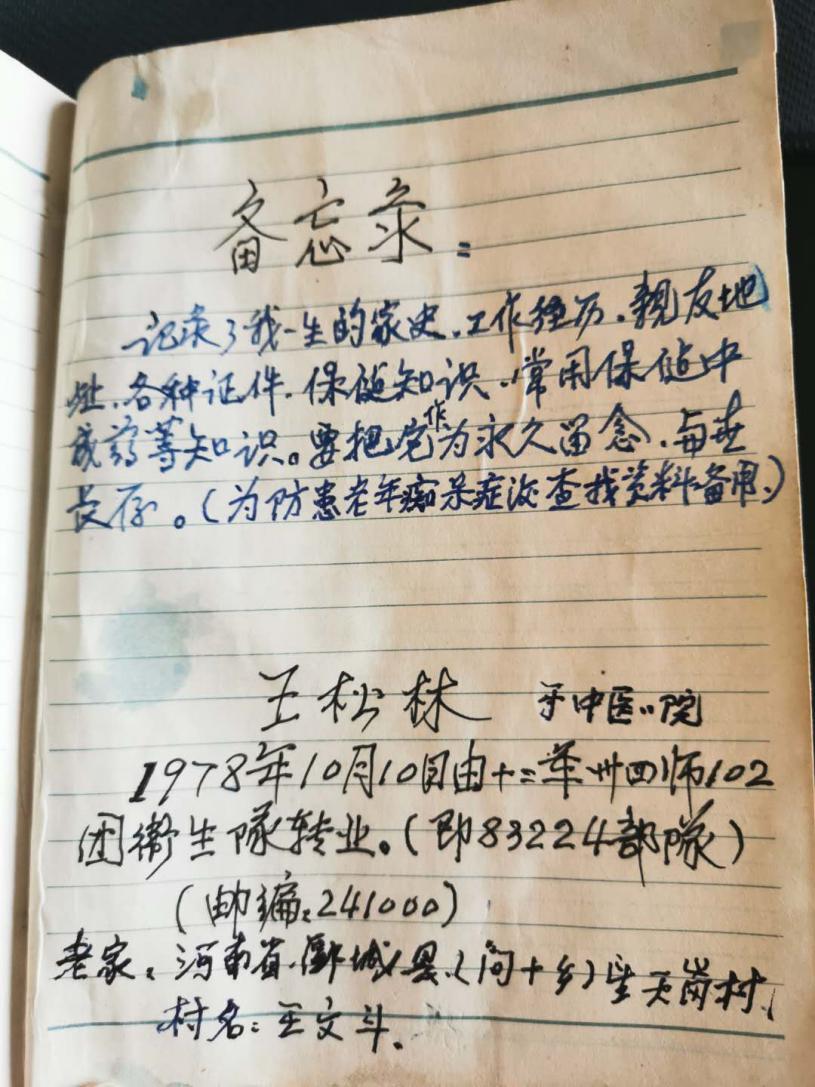 备忘录:
记录了我一生的家史.工作经历.亲友地
址.各种证件.保健知识.常用保健中
成药等知识。要把它作为永久留念.与世
长存。(为防患老年痴呆症没查找资料备用.)
王松林 于中医院
1978年10月10日由十二军卅四师102
团卫生队转业。(即83224部队)
(邮编:241000)
老家:河南省.郾城县.(问十乡)坐天岗村.
村名:王文斗.